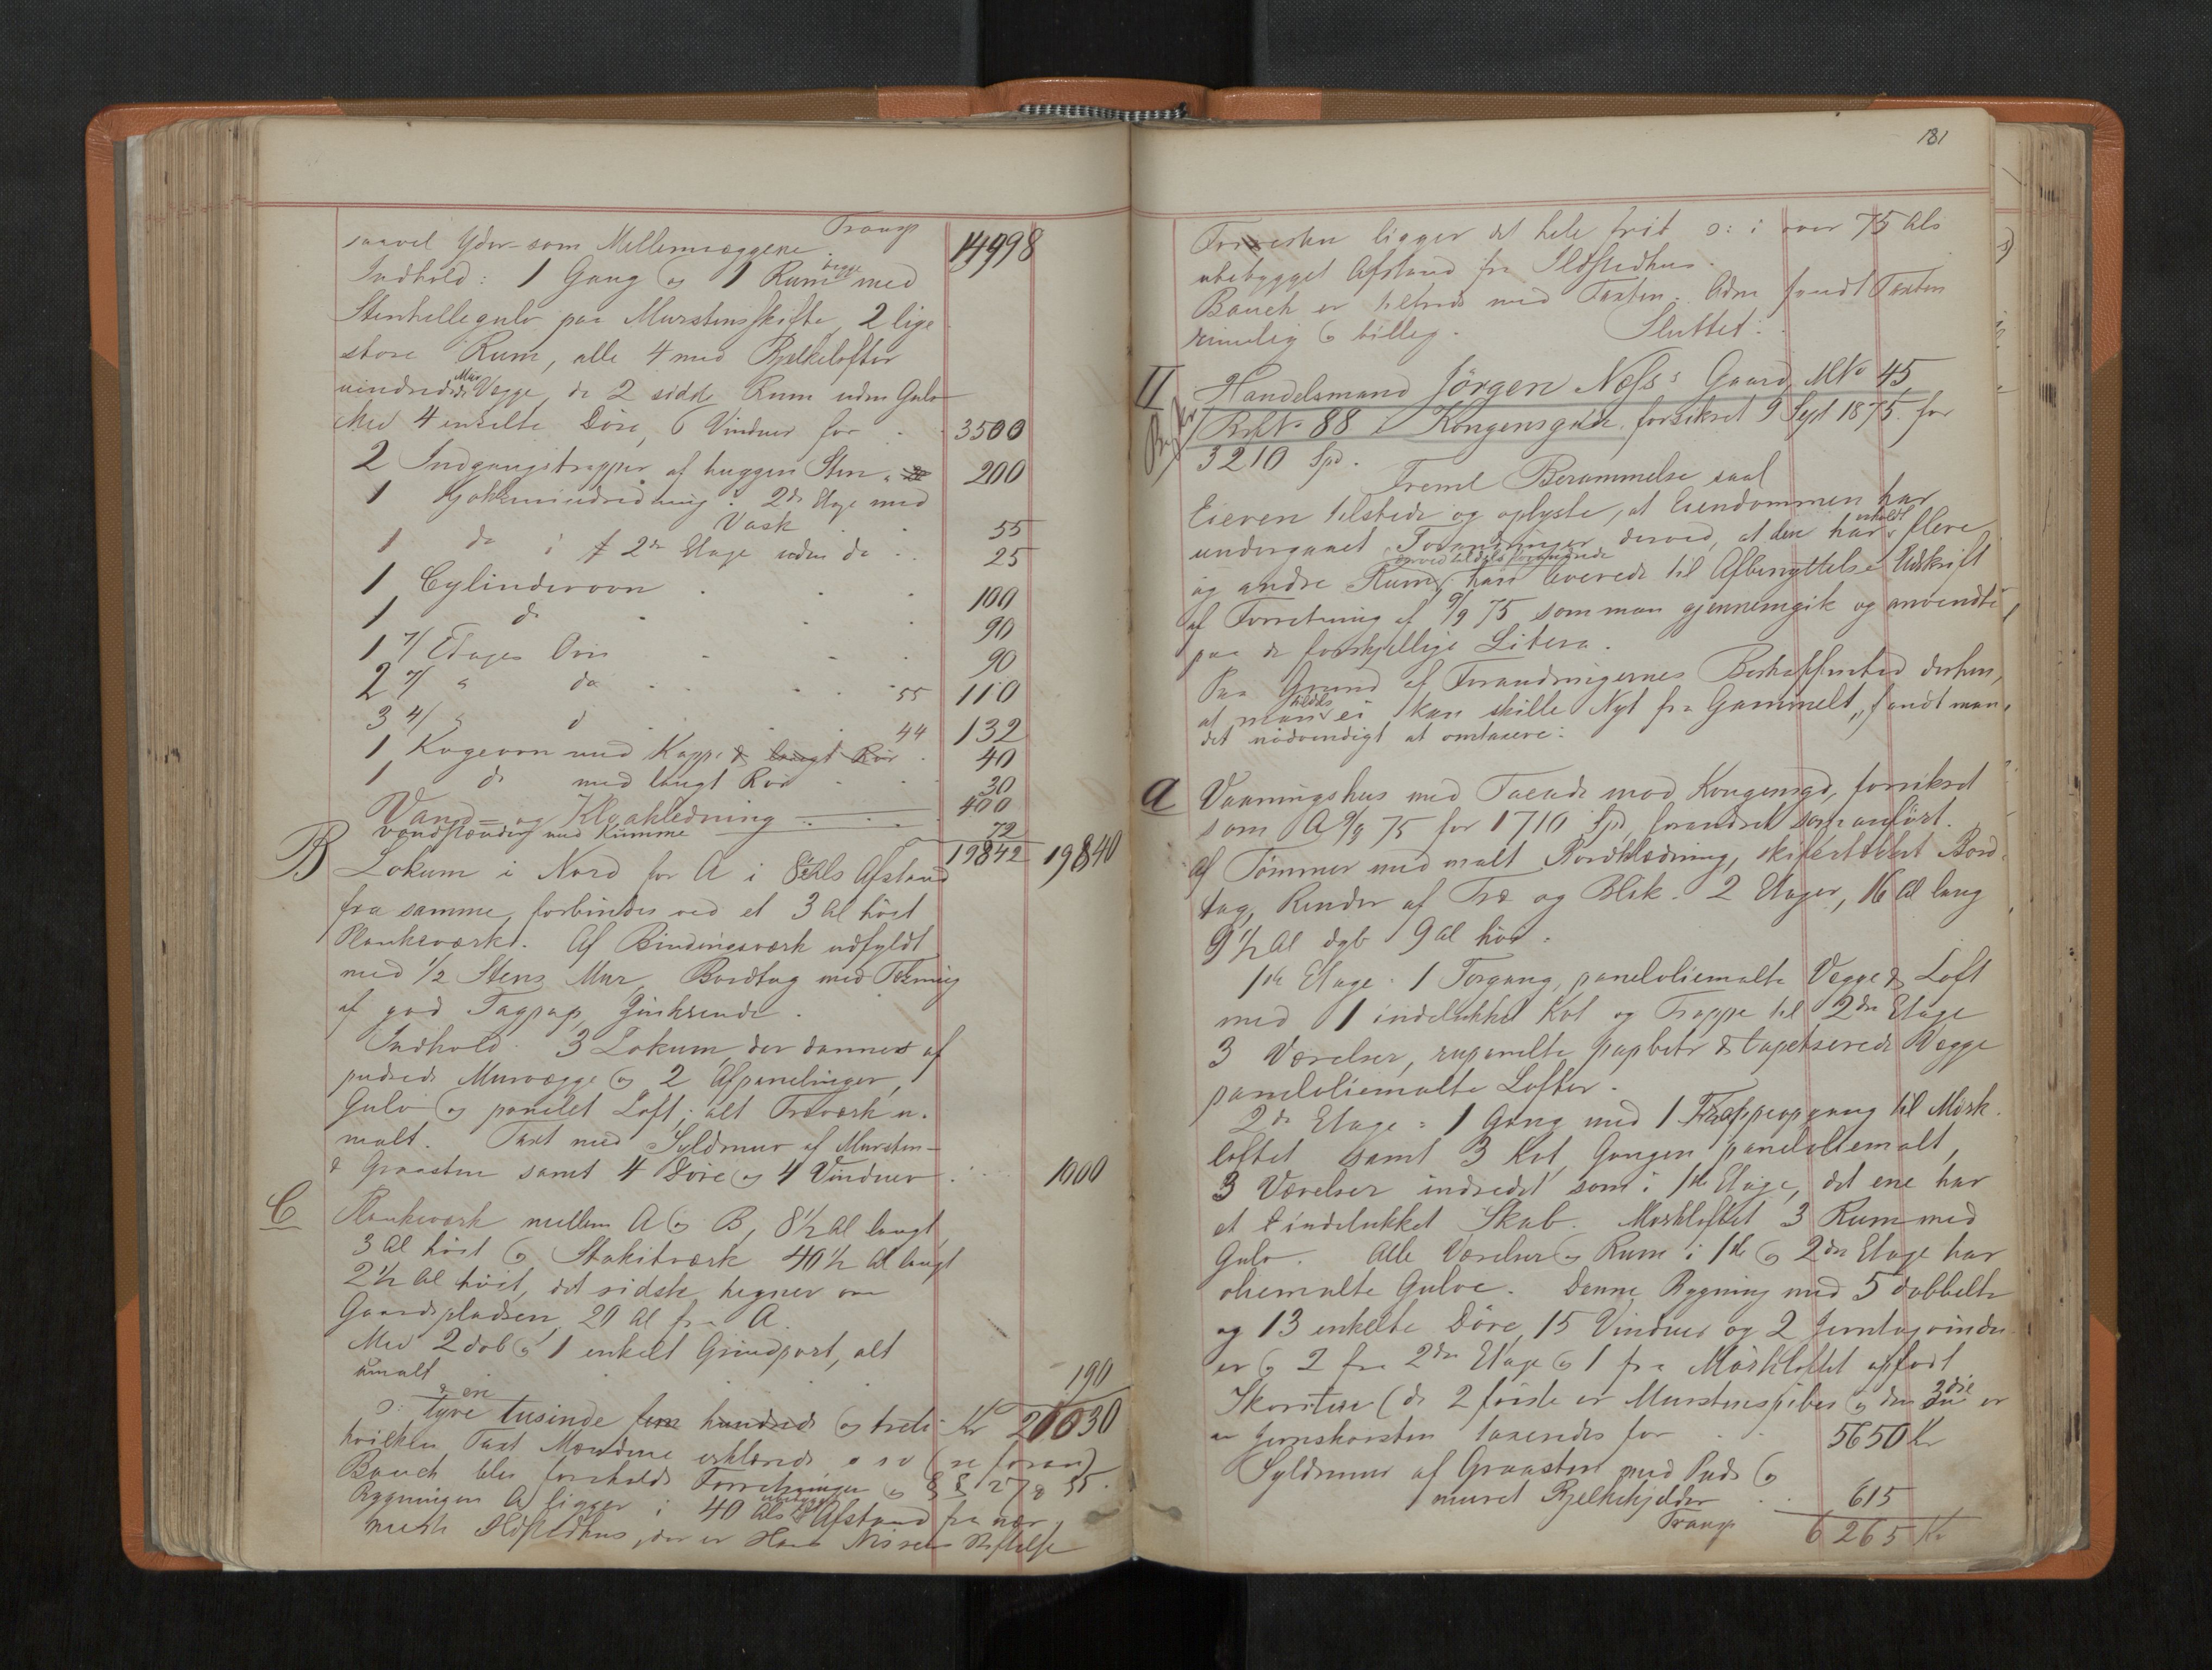 Transp 14998
saavel Yder- som Mellemvæggene.
Indhold: 1 Gang og 1 Rum begge med
Stenhellegulv paa Murstensskifte, 2 lige
store Rum, alle 4 med Bjelkelofter
uindredede Mur Vægge, de 2 sidste Rum uden Gulv
Med 4 enkelte Döre, 6 Vinduer for 3500
2 Indgangstrapper af huggen Sten 200
1 Kjökkenindredning i 2de Etage med
Vask 55
1 do i 2de Etage uden do 25
1 Cylinderovn 100
1 do 90
1 7/ Etages Ovn 90
2 " do 55 110
3 4/ " d 44 132
1 Kogeovn med Kappe & langt Rör 40
1 do med langt Rör 30
Vand- og Kloakledning 400
vandstænder med Kumme 72
19842 19840
B Lokum i Nord for A i 8 Als Afstand
fra samme, forbindes ved et 3 Al höit
Plankeværk. Af Bindingsværk udfyldt
med 1/2 Stens Mur, Bordtag med Tækning
af god Tagpap, Zinkrende.
Indhold: 3 Lokum, der dannes af
pudsede Murvægge og 2 Afpanelinger,
Gulv og panelet Loft; alt Træværk u-
malt. Taxt med Syldmur af Mursten-
& Graasten samt 4 Döre og 4 Vinduer 1000
C Plankeværk mellem A og B, 8 1/2 Al langt,
3 Al höit og Stakitværk 40 1/2 Al langt
2 1/2 Al höit, det sidste hegner om
Gaardspladsen, 20 Al fra A.
Med 2 dob og 1 enkelt Grindport, alt
umalt 190
& en
ɔ: tyve tusinde fem hundrede og treti Kr 21030
hvilken Taxt Mændene erklærede o s v (se foran)
Bauch blev foreholdt Forretningen og § § 27 & 35.
Bygningen A ligger i 40 Als ubebygget Afstand fra nær-
meste Ildstedhus, der er Hans Nissens Stiftelse
181
Forresten ligger det hele frit ɔ: i over 75 Als
ubebygget Afstand fra Ildstedhus.
Bauch er tilfreds med Taxten. Adm fandt Taxten
rimelig og billig. Sluttet.
II Handelsmand Jörgen Næss's Gaard, MNo 45,
BrNo 88 i Kongensgade, forsikret 9 Sept 1875 for
3210 Spd.
Freml Berammelse saal
Eieren tilstede og oplyste, at Eiendommen har
undergaaet Forandringer derved, at den har erholdt flere
og andre Rum, han leverede til Afbenyttelse Udskrift
af Forretning af 9/9 75 som man gjennemgik og anvendte
paa de forskjellige Litera.
Paa Grund af Forandringernes Beskaffenhed derhen,
at man tildels ei kan skille Nyt fra Gammelt, fandt man
det nödvendigt at omtaxere:
a Vaaningshus med Facade mod Kongensgd, forsikret
som A 9/9 75 for 1710 Spd, forandret som anfört.
Af Tömmer med malt Bordklædning, skifertækket Bord-
tag, Render af Træ og Blik. 2 Etager, 16 Al lang
9 1/2 Al dyb 9 Al höi.
1ste Etage: 1 Forgang, paneloliemalte Vægge & Loft
med 1 indelukket Kot og Trappe til 2den Etage
3 Værelser, rupanelte papbetr & tapetserede Vægge
paneloliemalte Lofter.
2de Etage: 1 Gang med 1 Trappeopgang til Mörk-
loftet samt 3 Kot, Gangen paneloliemalt,
3 Værelser indredet som i 1ste Etage, det ene har
et indelukket Skab. Mörkloftet 3 Rum med
Gulv. Alle Værelser og Rum i 1ste og 2den Etage har
oliemalte Gulve. Denne Bygning med 5 dobbelte
og 13 enkelte Döre, 15 Vinduer og 2 Jerntagvindu-
er og 2 fra 2den Etage og 1 fra Mörkloftet opfört
Skorstene (de 2 förste er Murstenspiber og den 3die er
en Jernskorsten taxeredes for 5650 Kr
Syldmur af Graasten med Puds og
muret Bjelkekjelder 615
Transp 6265 Kr